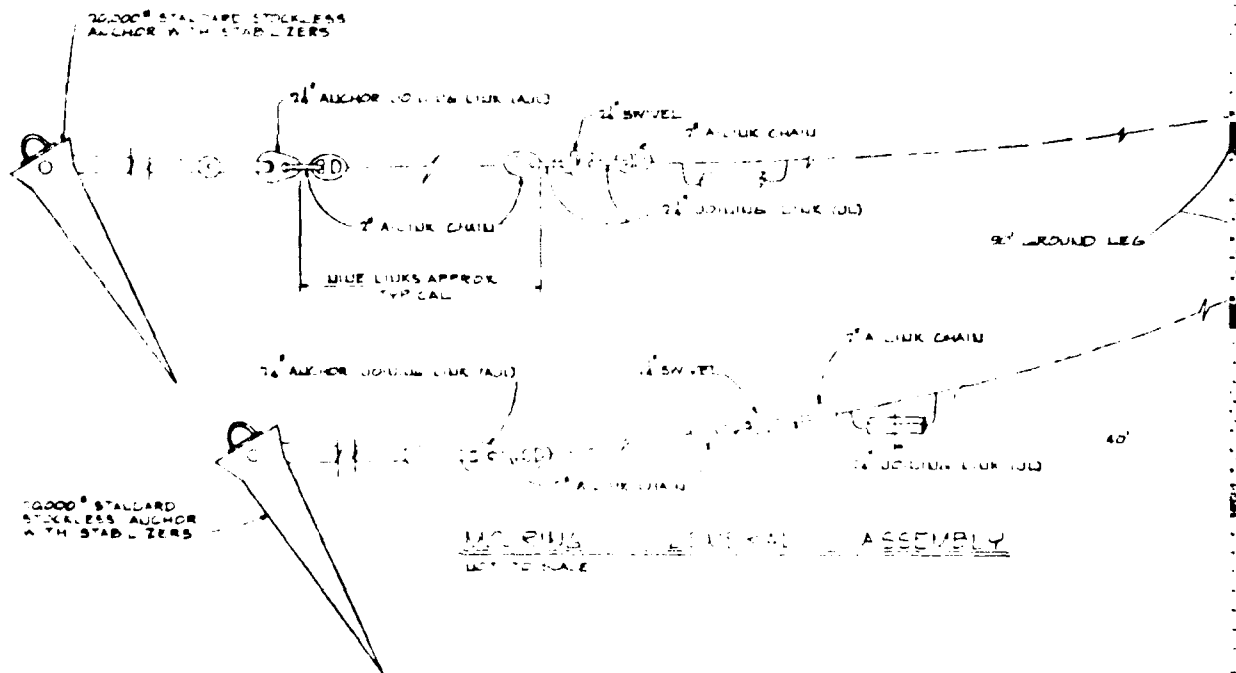 20,000# STANDARD STOCKLESS
ANCHOR WITH STABILIZERS
2¼" ANCHOR JOINING LINK (AJL)
2¼" SWIVEL
2" A-LINK CHAIN
2" A-LINK CHAIN
2¼" JOINING LINK (JL)
90' GROUND LEG
NINE LINKS APPROX
TYPICAL
2" A-LINK CHAIN
2¼" ANCHOR JOINING LINK (AJL)
SWIVEL
40'
JOINING LINK (JL)
A-LINK CHAIN
20,000# STANDARD
STOCKLESS ANCHOR
WITH STABILIZERS
MOORING ASSEMBLY
NOT TO SCALE